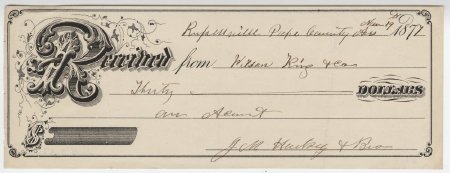 Russellville Pope County Ark Nov 19th 1877
Received from Wilson King & Co
Thirty DOLLARS
on Acount
J M Harkey & Bro